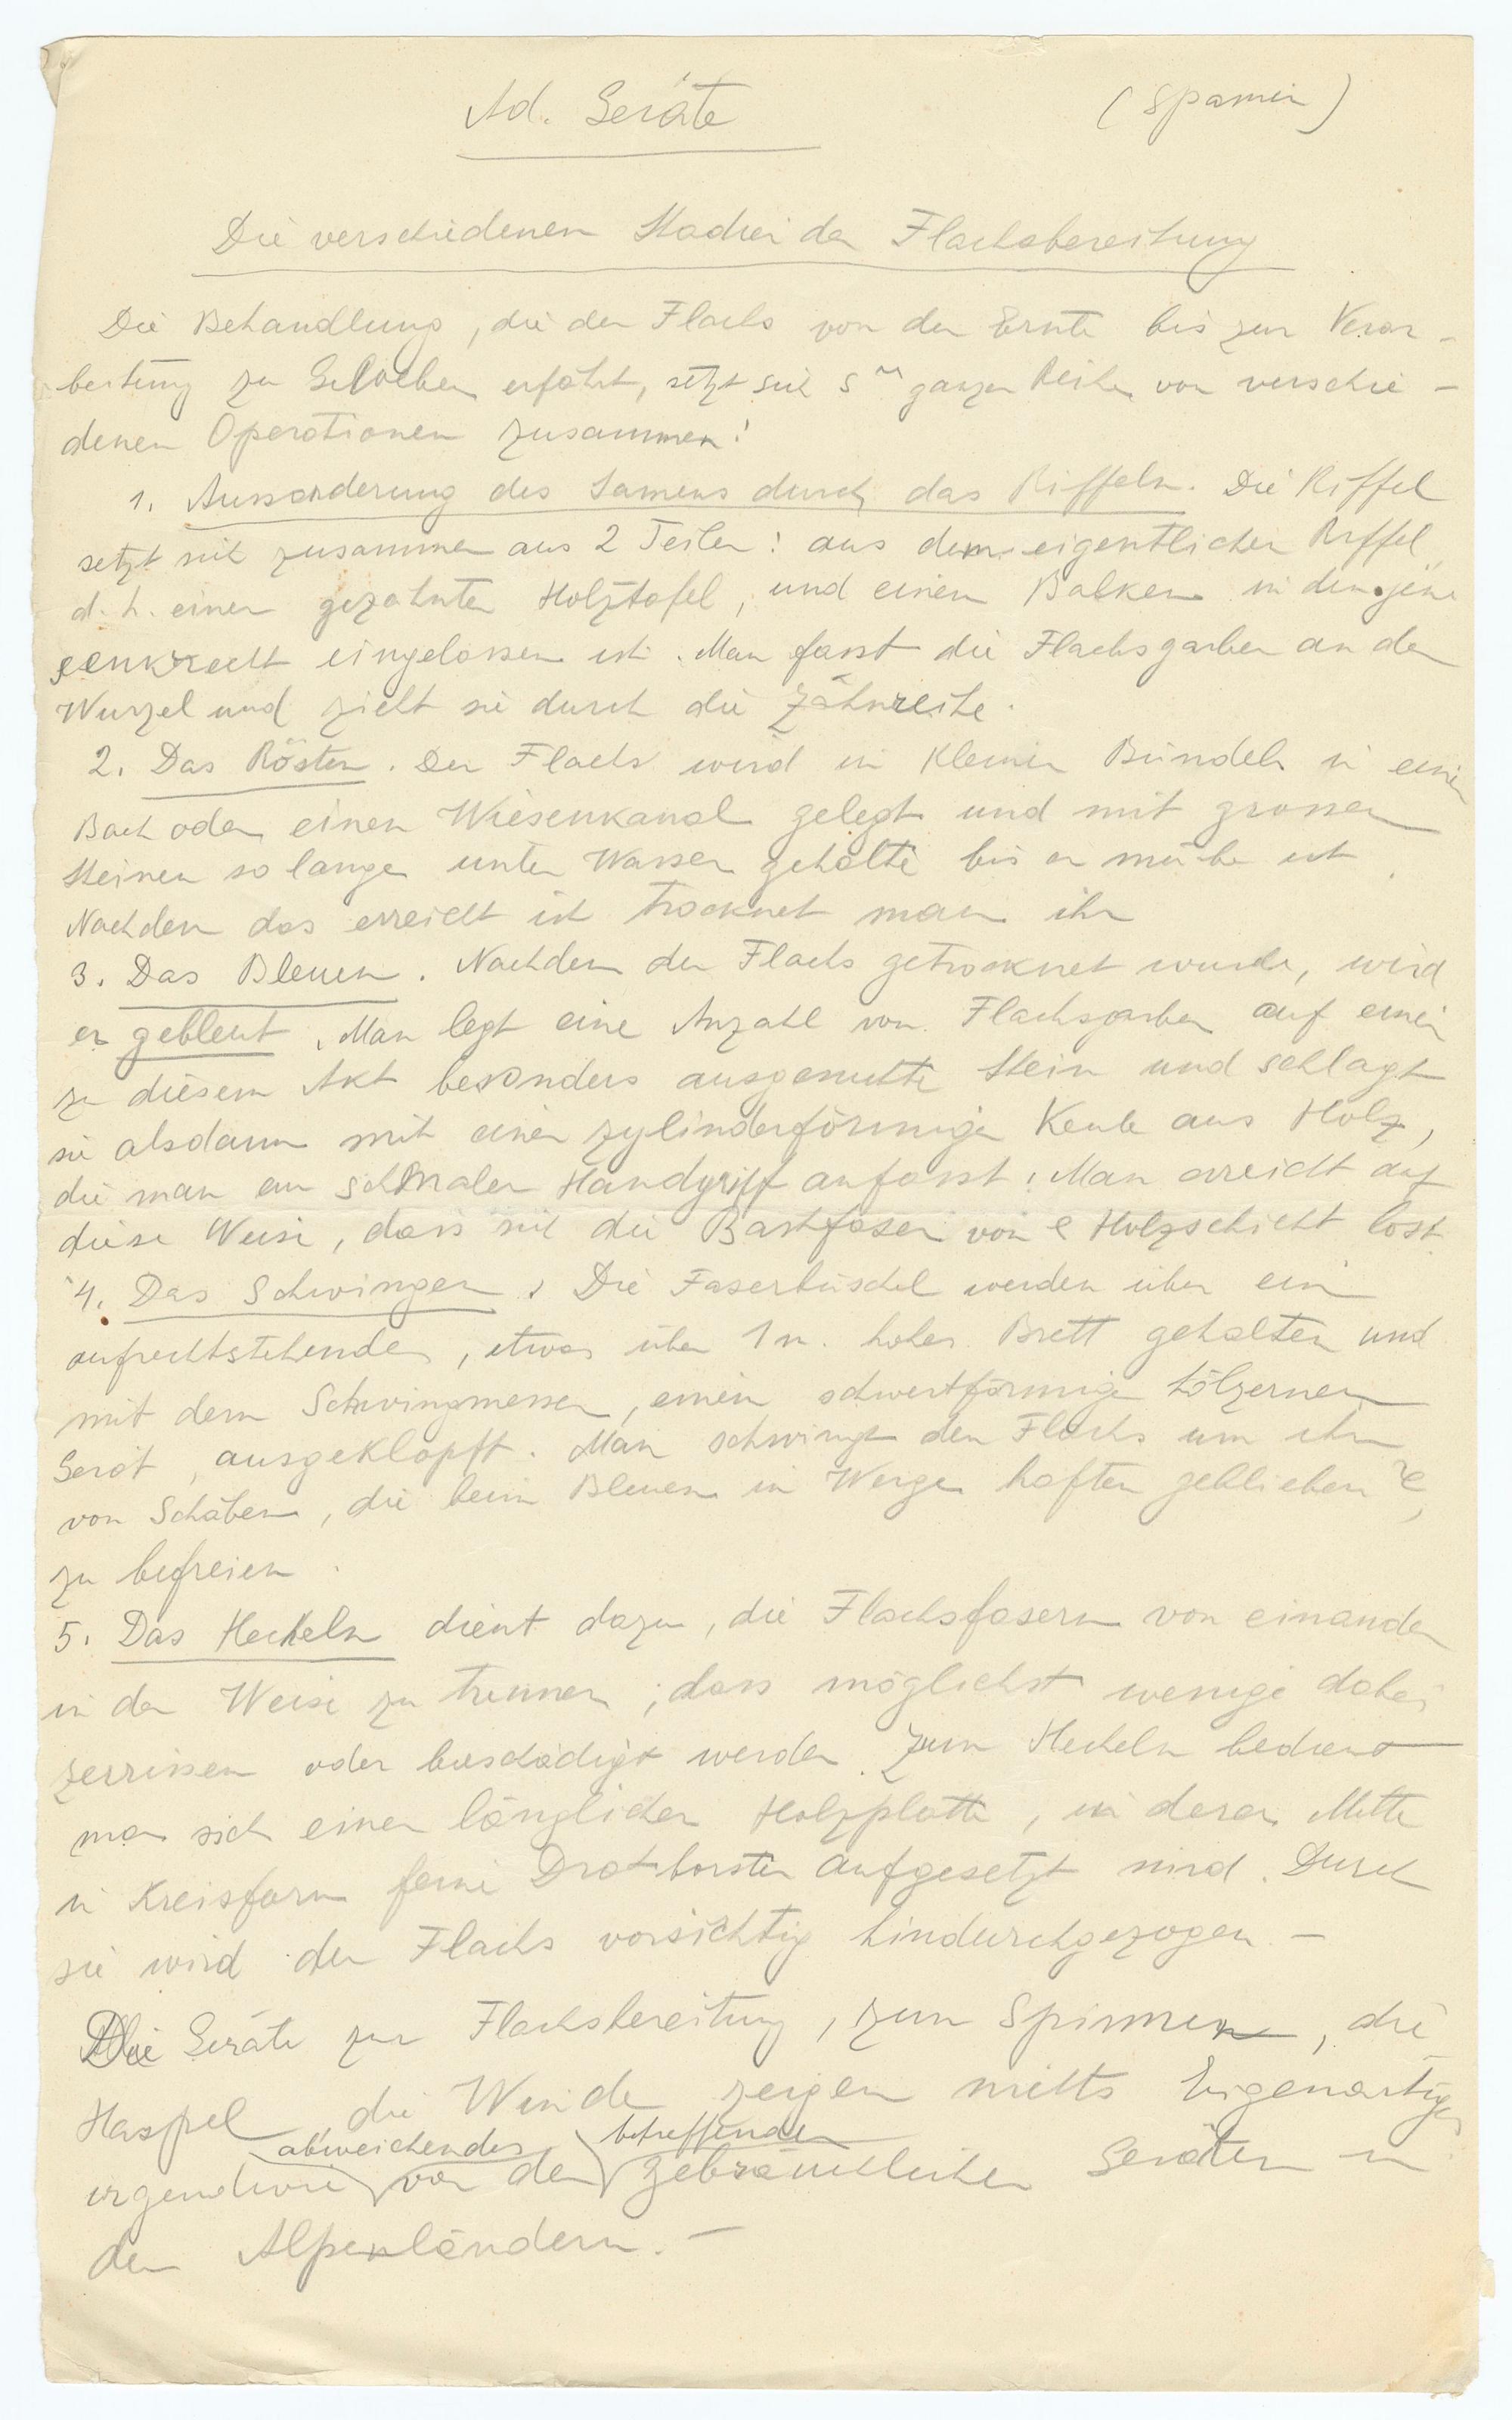 Ad. Geräte (Spanien)
Die verschiedenen Stadien der Flachsbereitung
Die Behandlung, die der Flachs von der Ernte bis zur Verar-
beitung zu erfährt, setzt sich ganzen Reihe von verschie-
denen Operationen zusammen:
1. Aussonderung des Samens durch das Riffeln. Die Riffel
setzt sich zusammen aus 2 Teilen: aus dem eigentlichen Riffel
d. h. einer gezahnten Holztafel, und einem Balken in den jene
senkrecht eingelassen ist. Man fasst die Flachsgarben an der
Wurzel und zieht sie durch die Zähnreihe.
2. Das Rösten. Der Flachs wird in kleinen Bündeln in einen
Bach oder einen Wiesenkanal gelegt und mit grossen
Steinen so lange unter Wasser gehalten bis er mürbe ist.
Nachdem das erreicht ist trocknet man ihn
3. Das Bleuen. Nachdem der Flachs getrocknet wurde, wird
er gebleut. Man legt eine Anzahl von Flachsgarben auf einen
zu diesem Akt besonders ausgesuchten Stein und schlagt
sie alsdann mit einer zylinderförmigen Keule aus Holz,
die man am schmalen Handgriff anfasst. Man erreicht auf
diese Weise, dass sich die Bastfaser von Holzschicht löst.
4. Das Schwingen. Die Faserbüschel werden über ein
aufrechtstehendes, etwas über 1 m. hohes Brett gehalten und
mit dem Schwingmesser, einem schwertförmigen hölzernen
Gerät, ausgeklopft. Man schwingt den Flachs um ihn
von Schäben, die beim Bleuen im Werge haften geblieben
zu befreien.
5. Das Hecheln dient dazu, die Flachsfasern von einander
in der Weise zu trennen, dass möglichst wenige dabei
zerrissen oder beschädigt werden. Zum Hecheln bedient
man sich einer länglichen Holzplatte, in deren Mitte
in Kreisform feine Drahtborsten aufgesetzt sind. Durch
sie wird der Flachs vorsichtig hindurchgezogen. —
Die Geräte zur Flachsbereitung, zum Spinnen, die
Haspel, die Winde zeigen nichts Eigenartiges
abweichendes betreffenden
irgendwie von den gebräuchlichen Geräten in
den Alpenländern. —